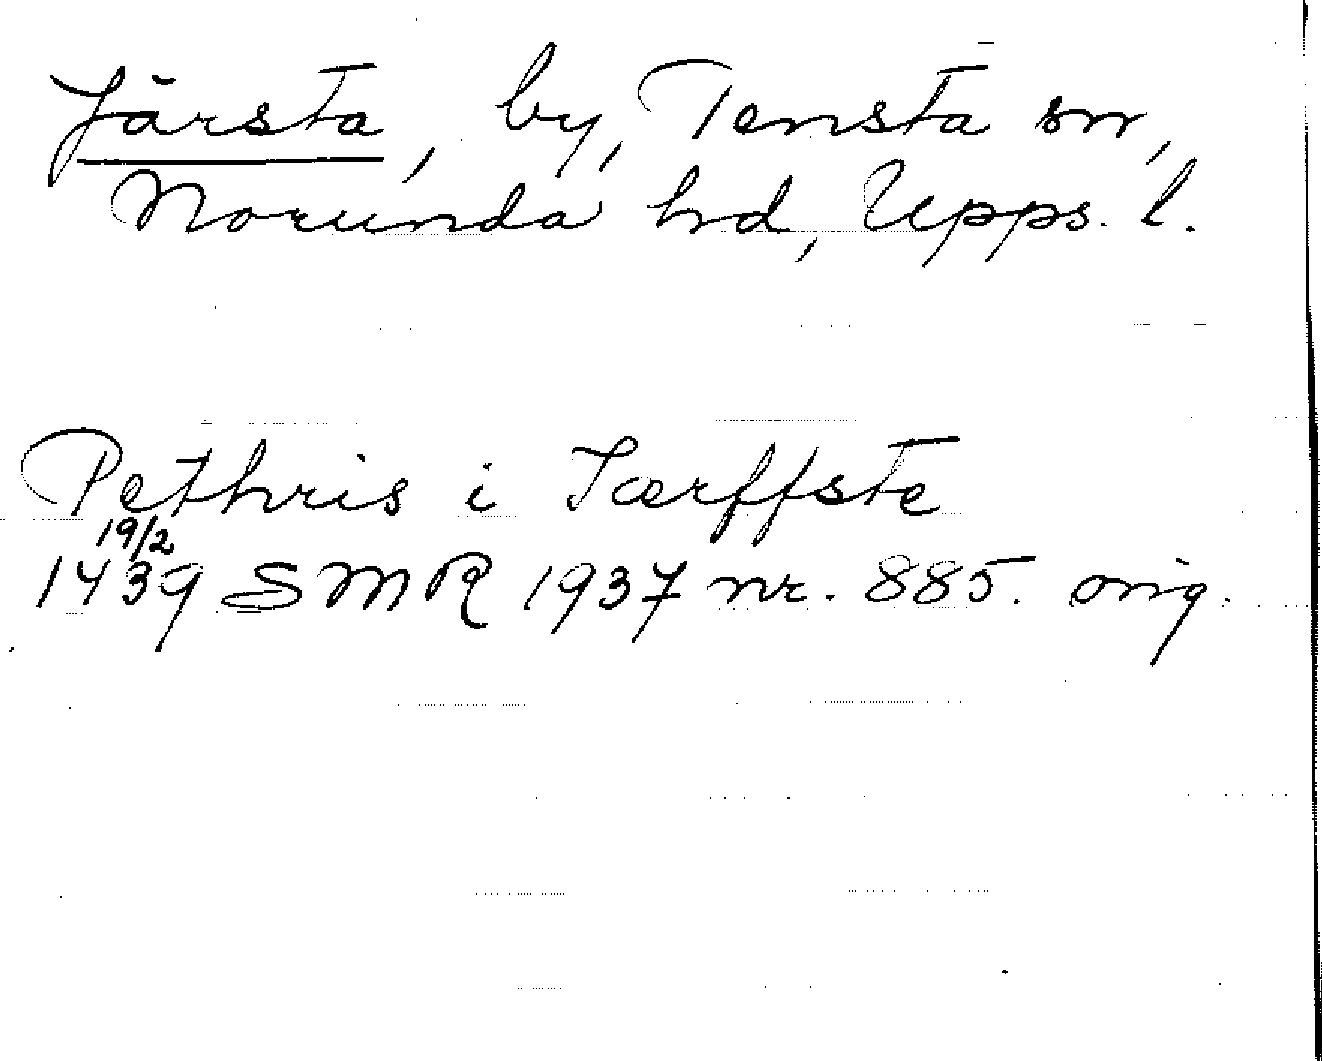 Järsta, by, Tensta sn,
Norunda hd, Upps. l.
Pethris i Iærffste
19/2
1439 SMR 1937 nr. 885. orig.